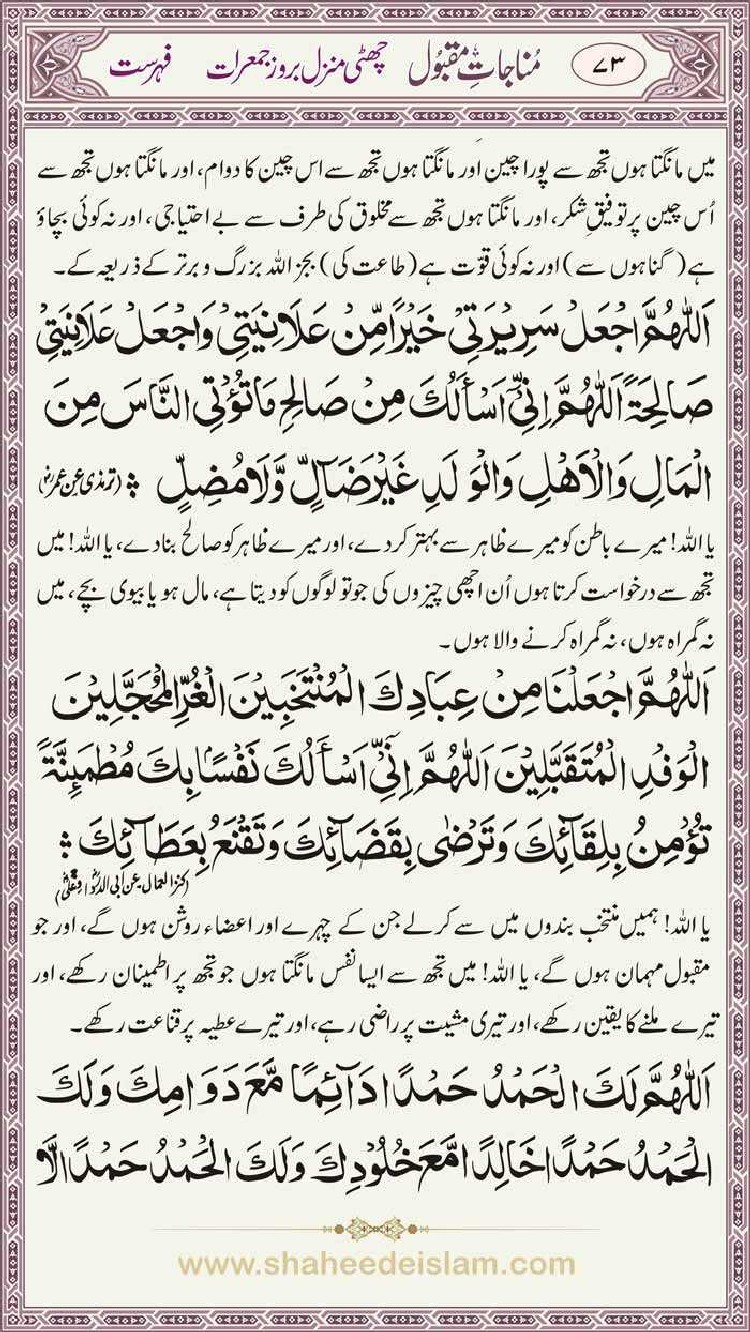 ۷۳ مُناجاتِ مقبُول چھٹی منزل بروز جمعرات فہرست
میں مانگتا ہوں تجھ سے پورا چین اور مانگتا ہوں تجھ سے اس چین کا دوام، اور مانگتا ہوں تجھ سے
اُس چین پر توفیقِ شکر، اور مانگتا ہوں تجھ سے مخلوق کی طرف سے بے احتیاجی، اور نہ کوئی بچاؤ
ہے (گناہوں سے) اور نہ کوئی قوّت ہے (طاعت کی) بجز اللہ بزرگ و برتر کے ذریعہ کے۔
اَللّٰهُمَّ اجْعَلْ سَرِيْرَتِيْ خَيْرًا مِّنْ عَلَانِيَتِيْ وَاجْعَلْ عَلَانِيَتِيْ
صَالِحَةً اَللّٰهُمَّ اِنِّيْٓ اَسْأَلُكَ مِنْ صَالِحِ مَا تُؤْتِي النَّاسَ مِنَ
الْمَالِ وَالْاَهْلِ وَالْوَلَدِ غَيْرَ ضَآلٍّ وَّلَا مُضِلٍّ ؞ (ترمذی عن عمرؓ)
یا اللہ! میرے باطن کو میرے ظاہر سے بہتر کر دے، اور میرے ظاہر کو صالح بنا دے، یا اللہ! میں
تجھ سے درخواست کرتا ہوں اُن اچھی چیزوں کی جو تو لوگوں کو دیتا ہے، مال ہو یا بیوی بچے، میں
نہ گمراہ ہوں، نہ گمراہ کرنے والا ہوں۔
اَللّٰهُمَّ اجْعَلْنَا مِنْ عِبَادِكَ الْمُنْتَخَبِيْنَ الْغُرِّ الْمُحَجَّلِيْنَ
الْوَفْدِ الْمُتَقَبَّلِيْنَ اَللّٰهُمَّ اِنِّيْٓ اَسْأَلُكَ نَفْسًا بِكَ مُطْمَئِنَّةً
تُؤْمِنُ بِلِقَآئِكَ وَتَرْضٰى بِقَضَآئِكَ وَتَقْنَعُ بِعَطَآئِكَ ؞
(کنز العمال عن ابی الدرداء وعلیؓ)
یا اللہ! ہمیں منتخب بندوں میں سے کر لے جن کے چہرے اور اعضاء روشن ہوں گے، اور جو
مقبول مہمان ہوں گے، یا اللہ! میں تجھ سے ایسا نفس مانگتا ہوں جو تجھ پر اطمینان رکھے، اور
تیرے ملنے کا یقین رکھے، اور تیری مشیت پر راضی رہے، اور تیرے عطیہ پر قناعت رکھے۔
اَللّٰهُمَّ لَكَ الْحَمْدُ حَمْدًا دَآئِمًا مَّعَ دَوَامِكَ وَلَكَ
الْحَمْدُ حَمْدًا خَالِدًا مَّعَ خُلُوْدِكَ وَلَكَ الْحَمْدُ حَمْدًا لَّا
www.shaheedeislam.com